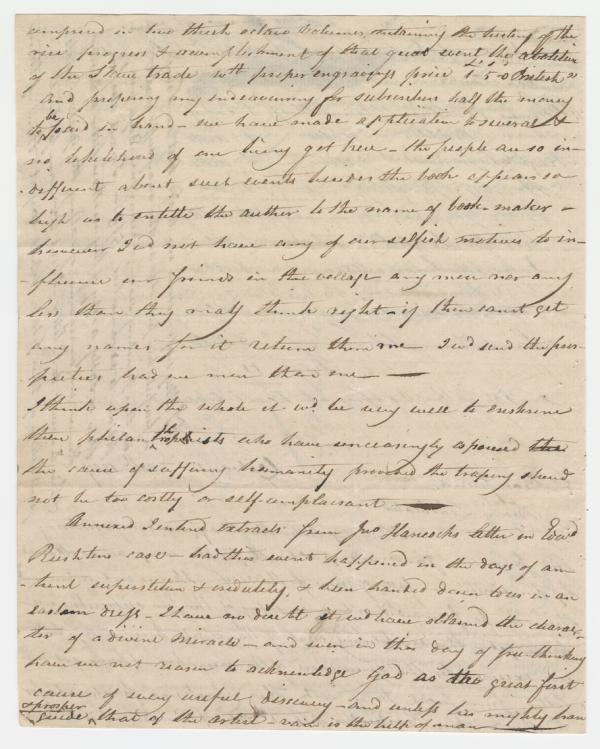 comprised in two thick octavo volumes, containing the history of the
rise progress & accomplishment of that great event the abolition
of the Slave trade wth proper engravings price £1"5"0 British"
and proposing my endeavouring for subscribers half the money
to be paid in hand – we have made application to several &
no likelihood of one being got here – the people are so in-
different about such events besides the book appears so
high as to entitle the author to the name of book-maker –
however I wd not have any of our selfish motives to in-
fluence our friends in the college any more nor any
less than they really think right – if thou canst get
any names for it return them me I wd send the pros-
pectus had we more than one –
I think upon the whole it wd be very well to enshrine
these philanthropists who have unceasingly espoused
the cause of suffering humanity provided the traping should
not be too costly or self-complaisant
Annexed I intend extracts from Jno Hancocks letter on Edwd
Rushtons case – had this event happened in the days of an-
tient superstition & credulity, & been handed down to us in an
eastern dress – I have no doubt it wd have obtained the charac-
ter of a divine Miracle – and even in this day of free-thinking
have we not reason to acknowledge God as the great first
cause of every useful discovery – and unless his mighty hand
& prosper
guide that of the artist – vain is the help of man